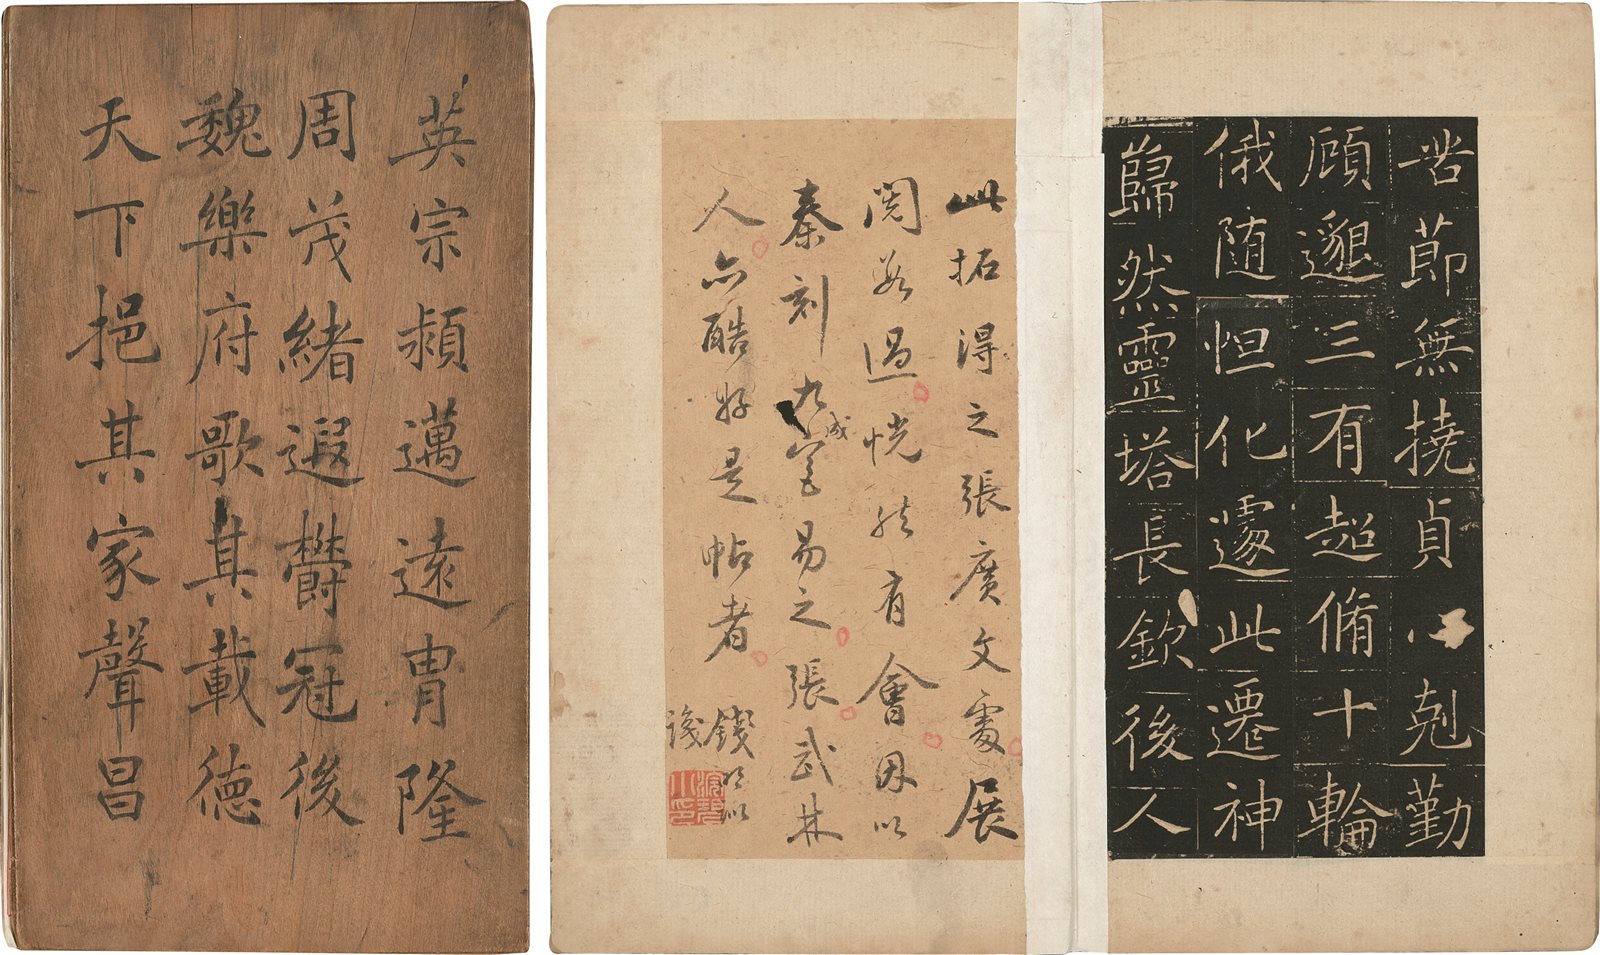 英宗邁遠胄隆
周茂緒遐欝冠後
魏樂府歌其載德
天下挹其家聲昌
苦節無撓貞心剋勤
顧邈三有超脩十輪
俄随怛化遽此遷神
巋然靈塔長欽後人
此拓得之張廣文處展
閱數過恍然有會因以
秦刻九成宮易之張武林
人亦酷好是帖者
錢以
識